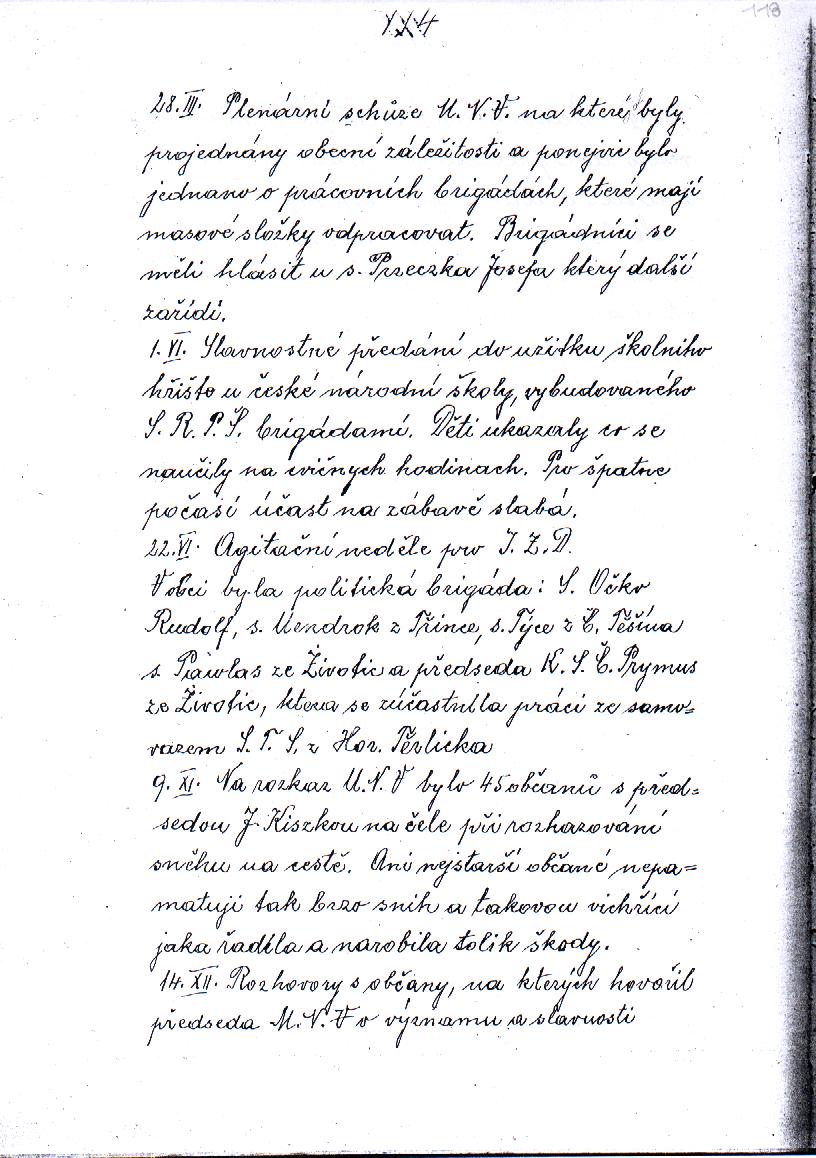 118
28.III. Plenární schůze M.N.V. na které byly
projednány obecní záležitosti a ponejvíc bylo
jednano o prácovních brigádách, které mají
masové složky odpracovat. Brigádníci se
měli hlásit u s. Przeczka Josefa který další
zařídí.
1. VI. Slavnostné předání do užitku školniho
hřišto u české národní školy, vybudovaného
S. R. P. Š. brigádamí. Děti ukazaly co se
naučily na cvičnych hodinach. Pro špatne
počasí účast na zábavě slabá.
22.VI. Agitační neděle pro J. Z. D.
V obci byla politická brigáda: S. Očko
Rudolf, s. Mendrok z Třince, s. Týce z Č. Těšína
s. Pawlas ze Životic a předseda K. S. Č. Prymus
ze Životic, ktera se zúčastnila práci ze samo=
vazem S. T. S. z Hor. Těrlicka
9. XI. Na rozkaz M.N.V bylo 45 občanů s před=
sedou J. Kiszkou na čele při rozhazování
sněhu na cestě. Ani nejstarší občané nepa=
matuji tak brzo snih a takovou vichřící
jaka řadila a narobila tolik škody.
14. XII. Rozhovory s občany, na kterých hovořil
předseda M. N. V o významu a slavnosti